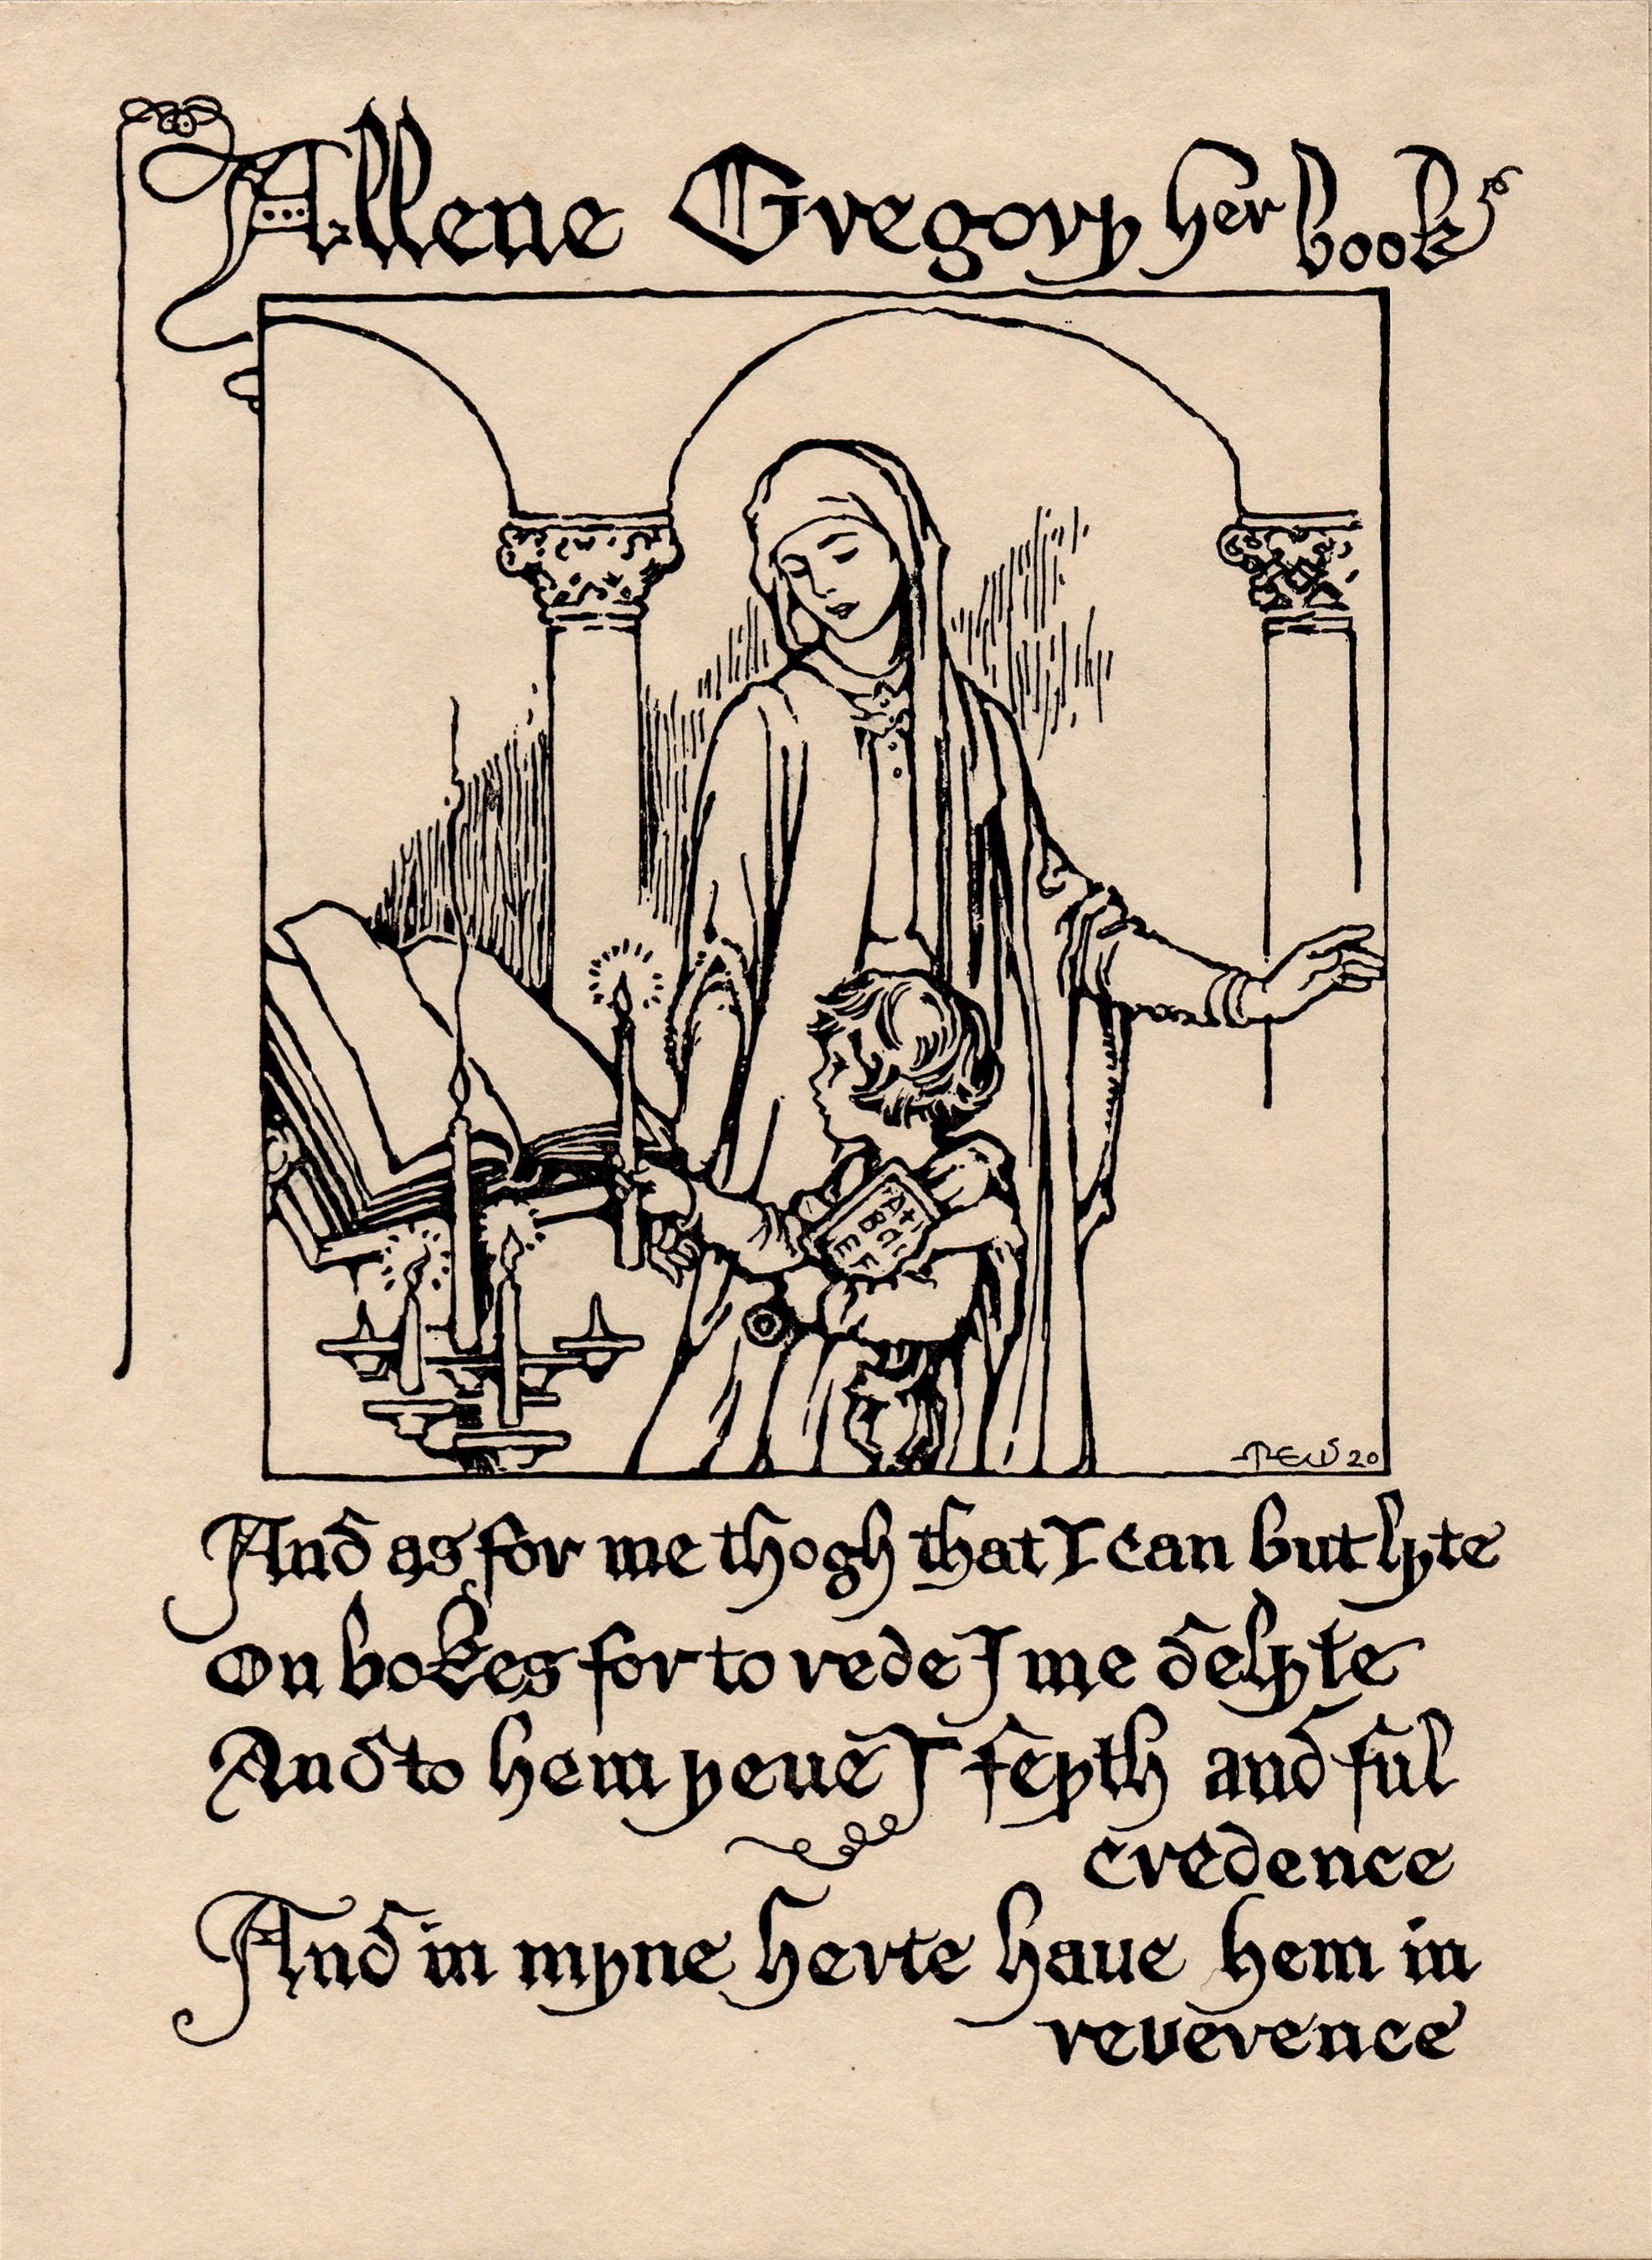 Allene Gregory her book
A
B
E F
20
And as for me thogh that I can but lyte
On bokes for to rede I me delyte
And to hem yeue I feyth and ful
credence
And in myne herte haue hem in
reverence